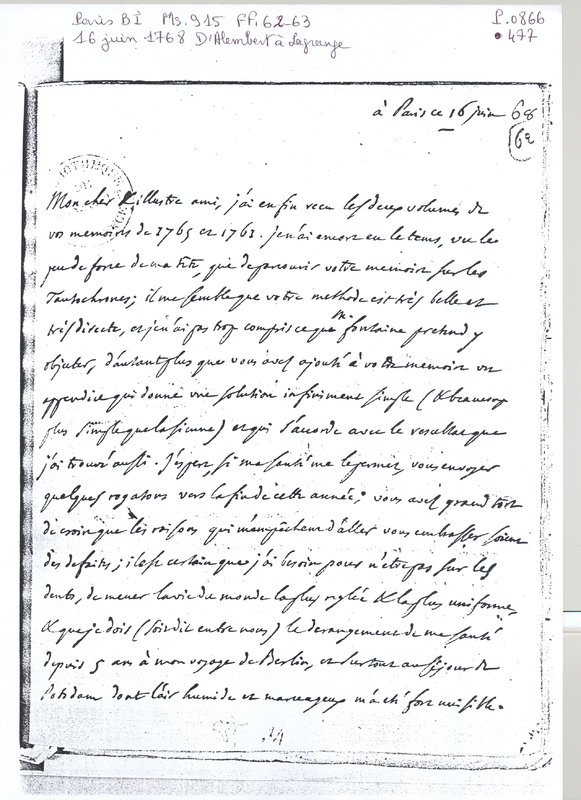 Paris BI Ms. 915 FF. 62-63
P. 0866
16 juin 1768 D'Alembert à Lagrange
• 477
à Paris ce 16 juin 68
62
Mon cher & illustre ami, j'ai enfin recu les deux volumes de
vos memoires de 1765 et 1761. je n'ai encore eu le tems, vu le
peu de force de ma tête, que de parcourir votre memoire sur les
Tautochrones; il me semble que votre methode est très belle et
très directe, et je n'ai pas trop compris ce que Mr. fontaine pretend y
objecter, d'autant plus que vous avés ajouté à votre memoire un
appendice qui donne une solution infiniment simple (& beaucoup
plus simple que la sienne) et qui s'accorde avec le resultat que
j'ai trouvé aussi. J'espere, si ma santé me le permet, vous envoyer
quelques rogatons vers la fin de cette année; vous avés grand tort
de croire que les raisons qui m'empêchent d'aller vous embrasser soient
des defaites; il est certain que j'ai besoin pour n'être pas sur les
dents, de mener la vie du monde la plus reglée & la plus uniforme,
& que je dois (soit dit entre nous) le derangement de ma santé
depuis 5 ans à mon voyage de Berlin, et surtout au séjour de
Potsdam dont l'air humide et marecageux m'a eté fort nuisible.